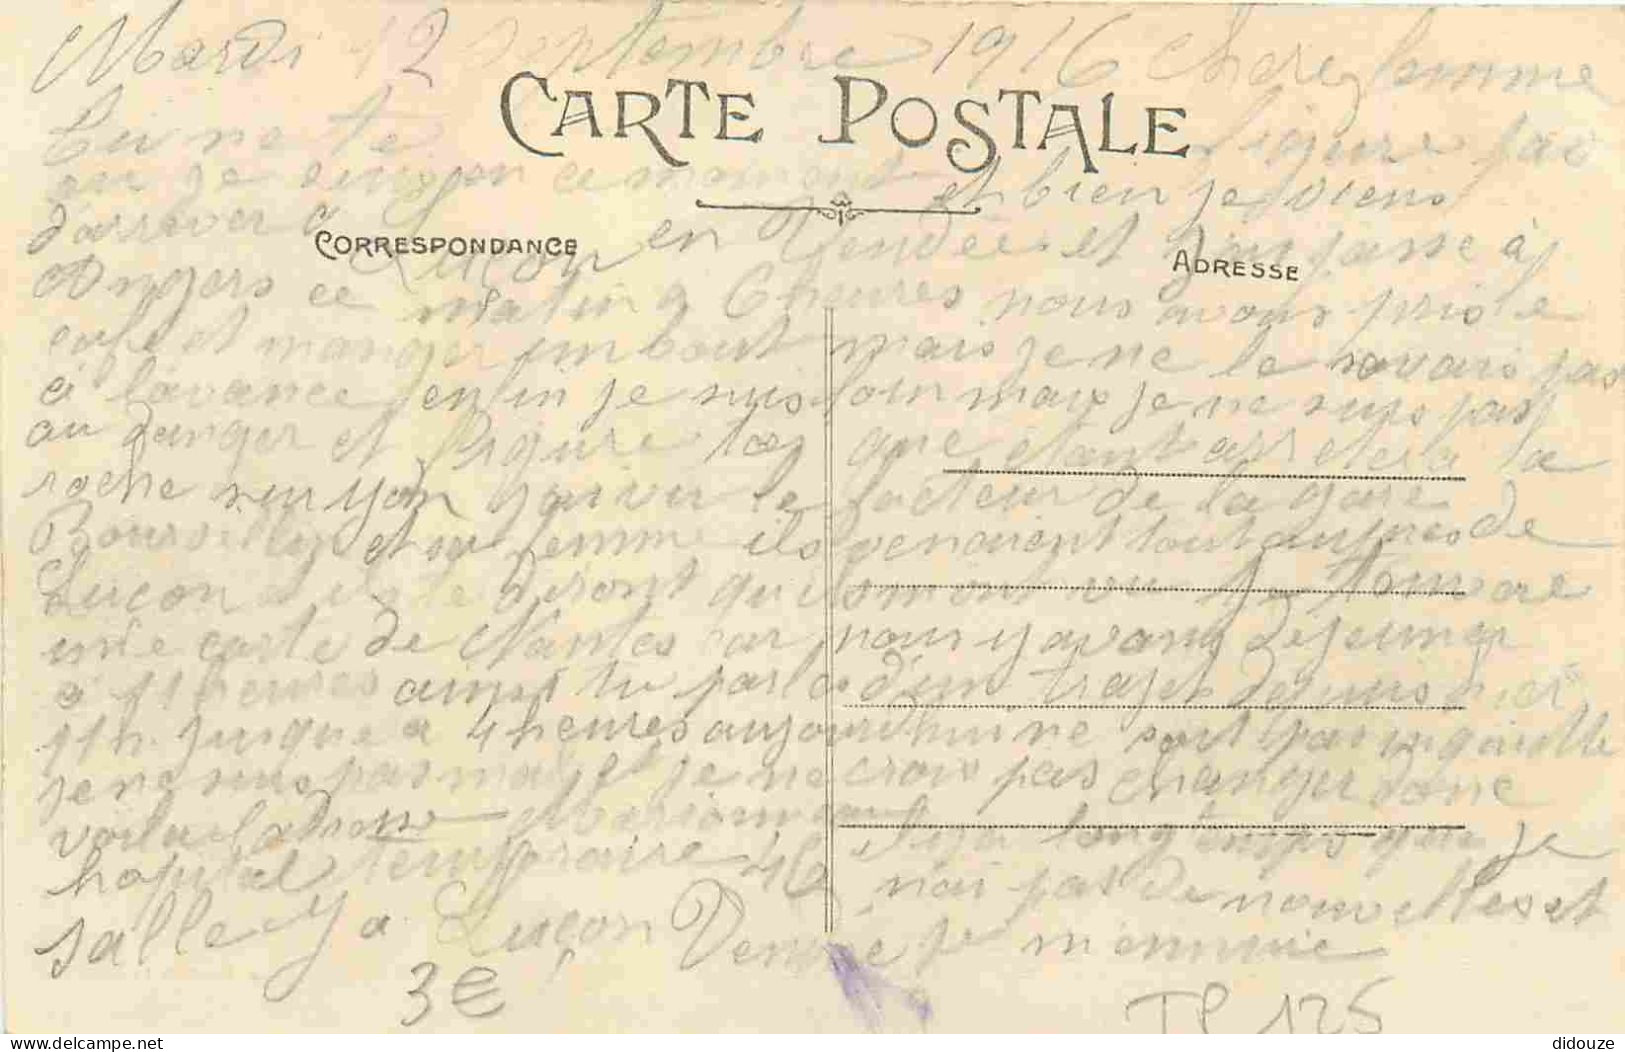 Mardi 12 Septembre 1916 Chère femme
CARTE POSTALE
tu ne te figure pas
ou je suis en ce moment et bien je viens
d'arriver à Luçon en Vendée et j'ai passé à
CORRESPONDANCE
ADRESSE
Angers ce matin a 6 heures nous avons pris le
café et manger un bout mais je ne le savais pas
à lavance enfin je suis loin mais je ne suis pas
au danger et figure toi que étant arreter a la
roche sur yon j'ai vu le facteur de la gare
et sa femme ils venaient tout aupres de
Luçon ils te diront qu'ils m'ont vu je t'envoie
une carte de Nantes car nous y avons déjeuner
a 11 heures ainsi tu parle d'un trajet depuis hier
11h. jusque a 4 heures aujourd'hui ne soit pas inquiette
je ne suis pas mal et je ne crois pas changer donc
voila l'adresse
hopital temporaire 46 deja longtemps que je
n'ai pas de nouvelles et
salle Luçon Vendée je m'ennuie
3€
TP 125
didouze